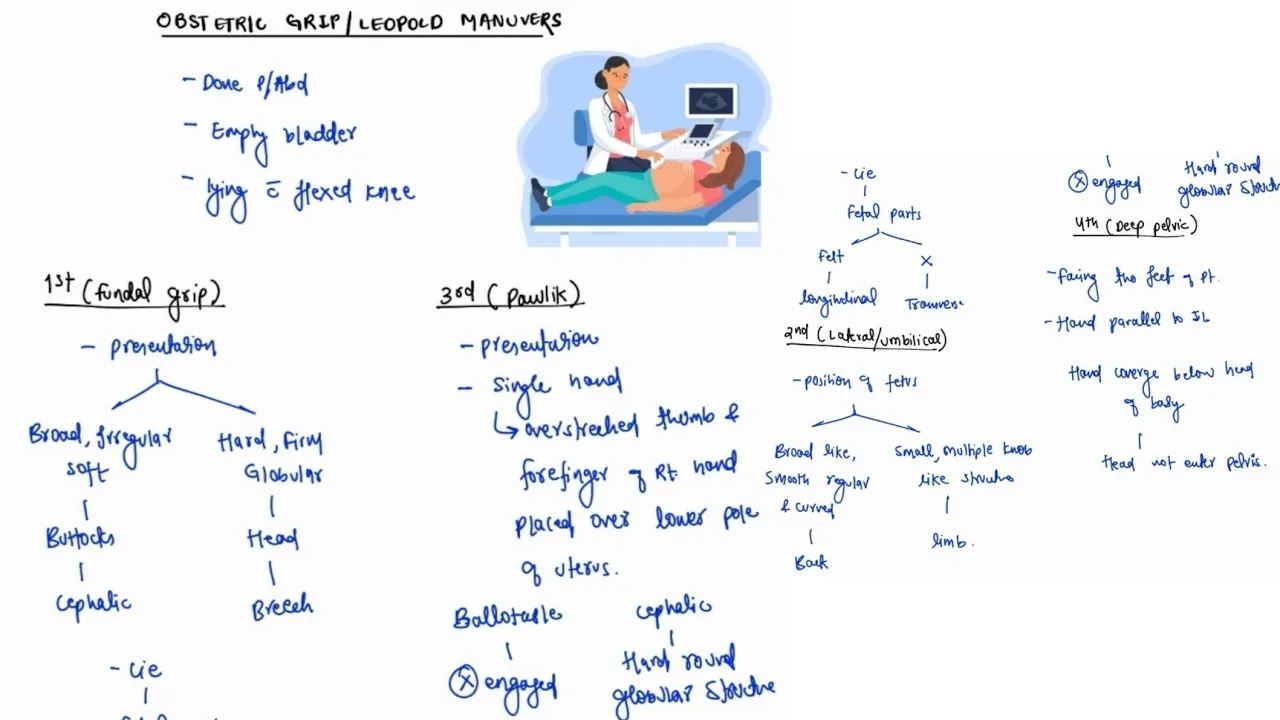 OBSTETRIC GRIP/LEOPOLD MANUVERS
- Done P/Abd
- Empty bladder
- lying c̄ flexed knee
1st (fundal grip)
- presentation
Broad, Irregular
soft
Buttocks
Cephalic
Hard, Firm
Globular
Head
Breech
- Lie
3rd (Pawlik)
- presentation
- Single hand
↳ overstreched thumb &
forefinger of Rt. hand
placed over lower pole
of uterus.
Ballotable
Ⓧ engaged
Cephalic
Hard round
globular Structure
- Lie
Fetal parts
Felt
longitudinal
X
Tranverse
2nd (Lateral/umbilical)
- position of fetus
Broad like,
Smooth regular
& curved
Back
Small, multiple knob
like structure
limb.
Ⓧ engaged
Hard round
globular Structu
4th (Deep pelvic)
- Facing the feet of Pt.
- Hand parallel to IL
Hand converge below head
of baby
Head not enter pelvis.